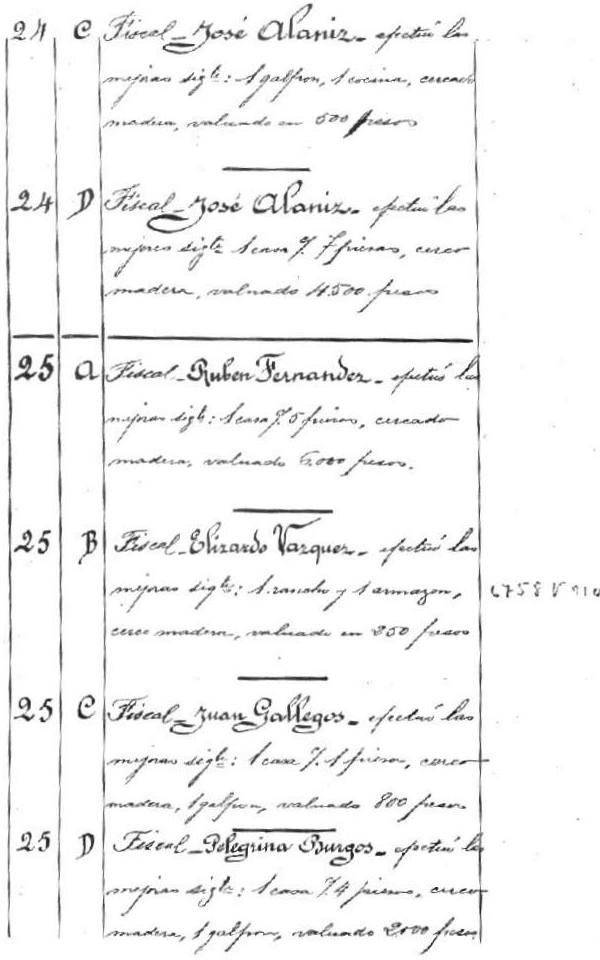 24 C Fiscal - José Alaniz - efectuó las
mejoras sigte: 1 galpon, 1 cocina, cercado
madera, valuado en 500 pesos
24 D Fiscal - José Alaniz - efectuó las
mejoras sigte 1 casa 7 piezas, cerco
madera, valuado 4.500 pesos
25 A Fiscal - Ruben Fernandez - efectuó las
mejoras sigte: 1 casa 5 piezas, cercado
madera, valuado 6.000 pesos.
25 B Fiscal - Elizardo Vazquez - efectuó las
mejoras sigte: 1 rancho y 1 armazon,
cerco madera, valuado en 250 pesos
25 C Fiscal - Juan Gallegos - efectuó las
mejoras sigte: 1 casa 1 pieza, cerco
madera, 1 galpon, valuado 800 pesos
25 D Fiscal - Pelegrina Burgos - efectuó las
mejoras sigte: 1 casa 4 piezas, cerco
madera, 1 galpon, valuado 2000 pesos